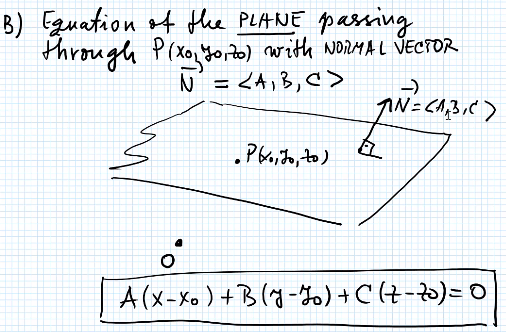 B) Equation of the PLANE passing
through P(x₀,y₀,z₀) with NORMAL VECTOR
N⃗ = <A, B, C>
N⃗ = <A,B,C>
P(x₀,y₀,z₀)
0
A(x-x₀) + B(y-y₀) + C(z-z₀) = 0